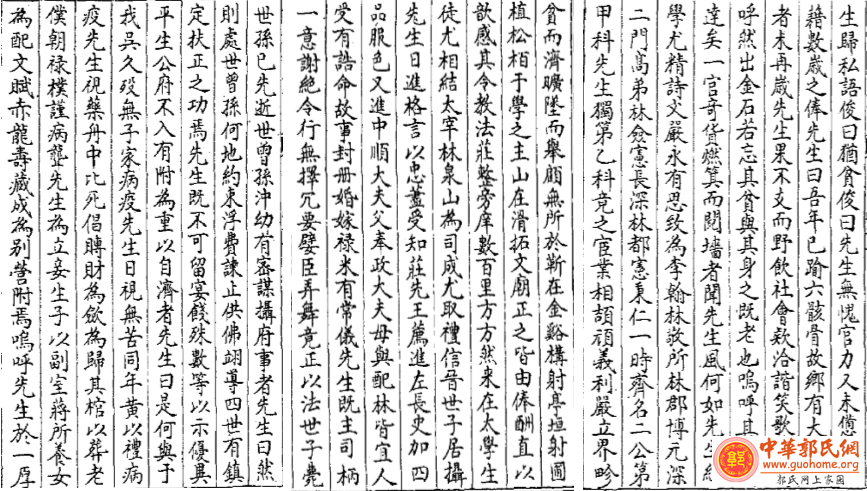 生歸私語俊曰猶貪俊曰先生無愧官力又未憊
藉數歲之俸先生曰吾年已踰六骸骨故鄉有大
者未再歲先生果不支而野飲社會欵洽諧笑歌
呼然出金石若忘其貧與其身之既老也嗚呼其
達矣一官奇貨燃箕而鬩墻者聞先生風何如先生
學尤精詩文嚴永有思致為李翰林敬所林郡博元深
二門高弟林僉憲長深林都憲秉仁一時齊名二公第
甲科先生獨第乙科竟之宦業相頡頏義利嚴立界畛
貧而濟曠墜而舉顧無所於靳在金谿搆射亭垣射圃
植松栢于學之主山在滑拓文廟正之皆由俸酬直以
歆感其令教法莊整旁庠數百里方方然来在太學生
徒尤相結太宰林泉山為司成尤取禮信晉世子居攝
先生日進格言以忠藎受知莊先王薦進左長史加四
品服色又進中順大夫父奉政大夫母與配林皆宜人
受有誥命故事封册婚嫁祿米有常儀先生既主司柄
一意謝絕令行無擇冗要嬖臣弄舞竟正以法世子薨
世孫已先逝世曾孫沖幼有密謀攝府事者先生曰然
則處世曾孫何地約束浮費諫止供佛翊導四世有鎮
定扶正之功焉先生既不可留宴餞殊數等以示優異
平生公府不入有附為重以自濟者先生曰是何與于
我吳久歿無子家病疫先生日視無苦同年黄以禮病
疫先生視藥舟中比死倡賻財為歛為歸其棺以葬老
僕朝祿樸謹病聾先生為立妾生子以副室蔣所養女
為配文賦赤龍壽藏成為别營附焉嗚呼先生於一厚
中華郭氏網
www.guohome.org
郭氏网上家園